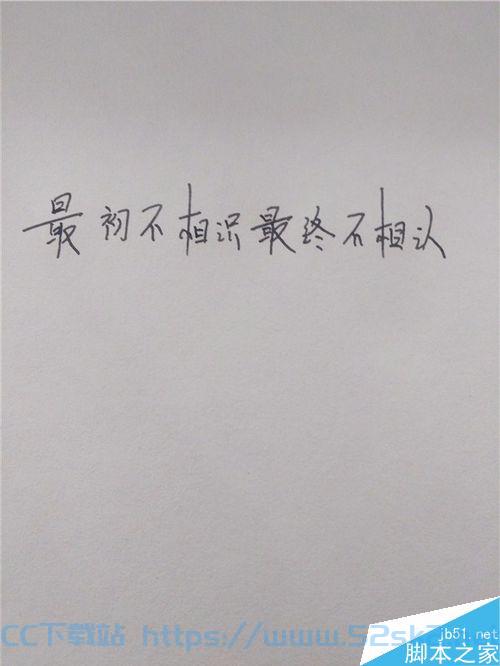 最初不相识最终不相认
jb51.net
CC下载站 https://www.52sk
脚本之家